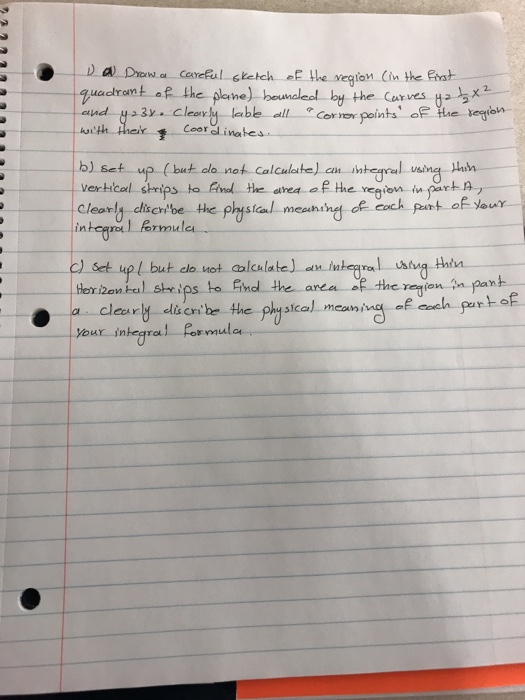 1) a) Draw a careful sketch of the region (in the first
quadrant of the plane) bounded by the curves y = 1/2 x²
and y = 3x. Clearly lable all "corner points" of the region
with their coordinates.
b) set up (but do not calculate) an integral using thin
vertical strips to find the area of the region in part A,
Clearly discribe the physical meaning of each part of your
integral formula.
c) set up ( but do not calculate) an integral using thin
Horizontal strips to find the area of the region in part
a. clearly discribe the physical meaning of each part of
your integral formula.